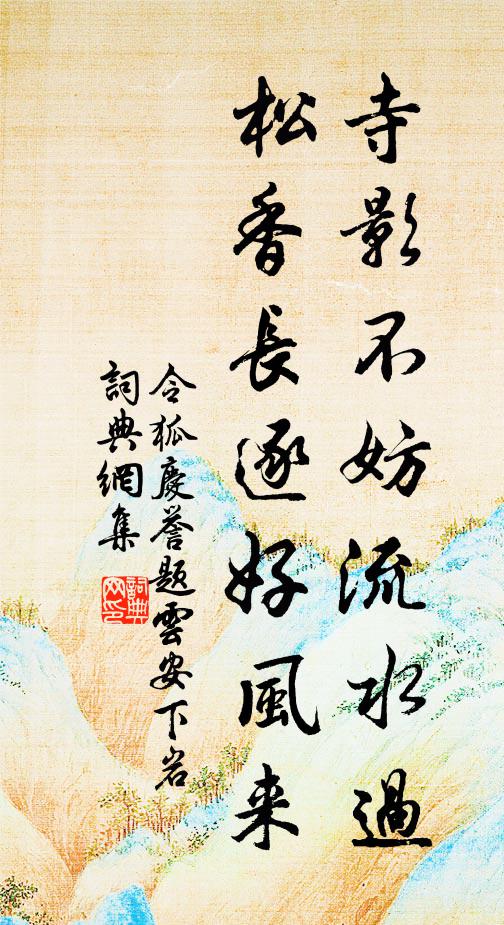 寺影不妨流水過
松香長逐好風来
令狐慶譽題雲安下岩
詞典網集
詞典
网印